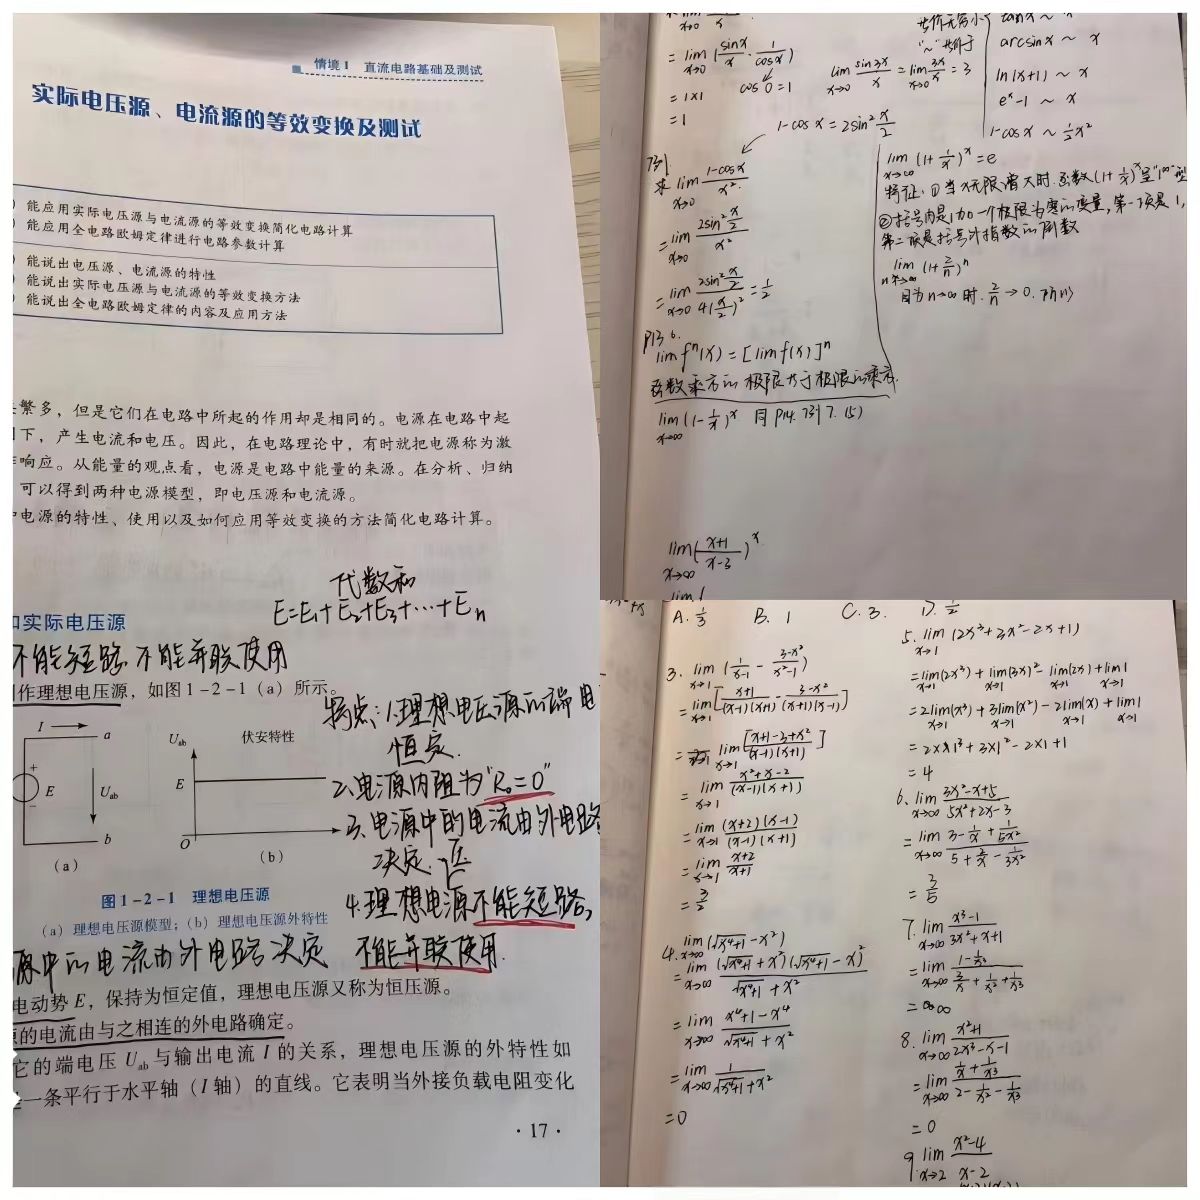 情境1 直流电路基础及测试
实际电压源、电流源的等效变换及测试
能应用实际电压源与电流源的等效变换简化电路计算
能应用全电路欧姆定律进行电路参数计算
能说出电压源、电流源的特性
能说出实际电压源与电流源的等效变换方法
能说出全电路欧姆定律的内容及应用方法
繁多，但是它们在电路中所起的作用却是相同的。电源在电路中起
下，产生电流和电压。因此，在电路理论中，有时就把电源称为激
响应。从能量的观点看，电源是电路中能量的来源。在分析、归纳
可以得到两种电源模型，即电压源和电流源。
电源的特性、使用以及如何应用等效变换的方法简化电路计算。
代数和
E=E₁+E₂+E₃+…+Eₙ
和实际电压源
不能短路 不能并联使用
作理想电压源，如图1-2-1（a）所示。
特点：1.理想电压源的端电
恒定.
2、电源内阻为"R₀=0"
3、电源中的电流由外电路
决定.
4.理想电源不能短路,
不能并联使用.
I
a
+
E
Uab
-
b
(a)
Uab
伏安特性
E
O
I
(b)
图1-2-1 理想电压源
(a) 理想电压源模型；(b) 理想电压源外特性
源中的电流由外电路决定
电动势 E，保持为恒定值，理想电压源又称为恒压源。
的电流由与之相连的外电路确定。
它的端电压 Uab 与输出电流 I 的关系，理想电压源的外特性如
一条平行于水平轴（I 轴）的直线。它表明当外接负载电阻变化
·17·
=lim x→0 (sinx/x · 1/cosx)
cos0=1
=1×1
=1
lim x→0 sin3x/x = lim x→0 3x/x = 3
1-cosx=2sin² x/2
"~"等价于
tanx ~ x
arcsinx ~ x
ln(x+1) ~ x
eˣ-1 ~ x
1-cosx ~ ½x²
例
求 lim x→0 1-cosx/x²
=lim x→0 2sin² x/2 / x²
=lim x→0 2sin² x/2 / 4(x/2)² = 1/2
P13 6.
lim fⁿ(x)=[lim f(x)]ⁿ
函数乘方的极限等于极限的乘方.
lim x→∞ (1-1/x)ˣ 同P14.例7.15)
lim x→∞ (x+1/x-3)ˣ
lim x→∞ (1+1/x)ˣ=e
特征: ①当x无限增大时.函数(1+1/x)ˣ呈"1^∞"型
②括号内是1加一个极限为零的变量,第一项是1,
第二项是括号外指数的倒数
lim n→∞ (1+2/n)ⁿ
因为n→∞时. 2/n→0. 所以
A. 1/3 B. 1 C. 3. D. 1/2
3. lim x→1 (1/x-1 - 3-x²/x²-1)
=lim x→1 [x+1/(x-1)(x+1) - 3-x²/(x+1)(x-1)]
=lim x→1 [x+1-3+x²/(x-1)(x+1)]
=lim x→1 x²+x-2/(x-1)(x+1)
=lim x→1 (x+2)(x-1)/(x-1)(x+1)
=lim x→1 x+2/x+1
=3/2
4. lim x→∞ (√x⁴+1-x²)
=lim x→∞ (√x⁴+1+x²)(√x⁴+1-x)²/√x⁴+1+x²
=lim x→∞ x⁴+1-x⁴/√x⁴+1+x²
=lim x→∞ 1/√x⁴+1+x²
=0
5. lim x→1 (2x³+3x²-2x+1)
=lim x→1 (2x³)+lim x→1 (3x)²-lim x→1 (2x)+lim x→1 1
=2lim x→1 (x³)+3lim x→1 (x²)-2lim x→1 (x)+lim x→1 1
=2×1³+3×1²-2×1+1
=4
6. lim x→∞ 3x²-x+5/5x²+2x-3
=lim x→∞ 3-1/x+1/5x² / 5+2/x-1/3x²
=3/5
7. lim x→∞ x³-1/3x²+x+1
=lim x→∞ 1-1/x³ / 3/x+1/x²+1/x³
=∞
8. lim x→∞ x²+1/2x³-x-1
=lim x→∞ 1/x+1/x³ / 2-1/x²-1/x³
=0
9. lim x→2 x²-4/x-2